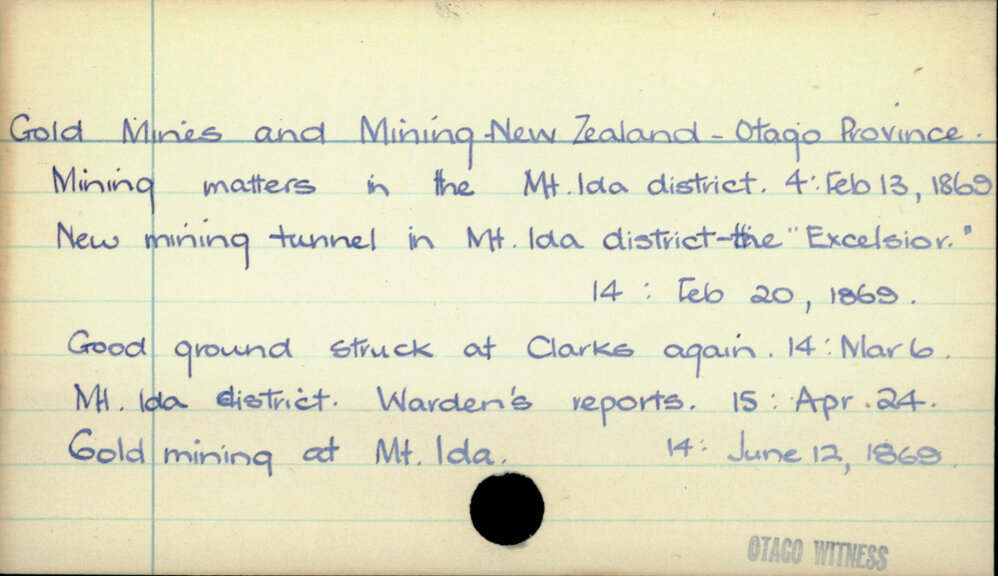 Gold Mines and Mining-New Zealand - Otago Province.
Mining matters in the Mt. Ida district. 4: Feb 13, 1869
New mining tunnel in Mt. Ida district-the "Excelsior."
14 : Feb 20, 1869.
Good ground struck at Clarks again. 14: Mar 6.
Mt. Ida district. Warden's reports. 15: Apr. 24.
Gold mining at Mt. Ida. 14: June 12, 1869.
OTAGO WITNESS